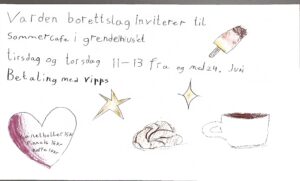 Varden borettslag inviterer til
Sommercafe i grendehuset
tirsdag og torsdag 11-13 fra og med 24. Juni
Betaling med vipps